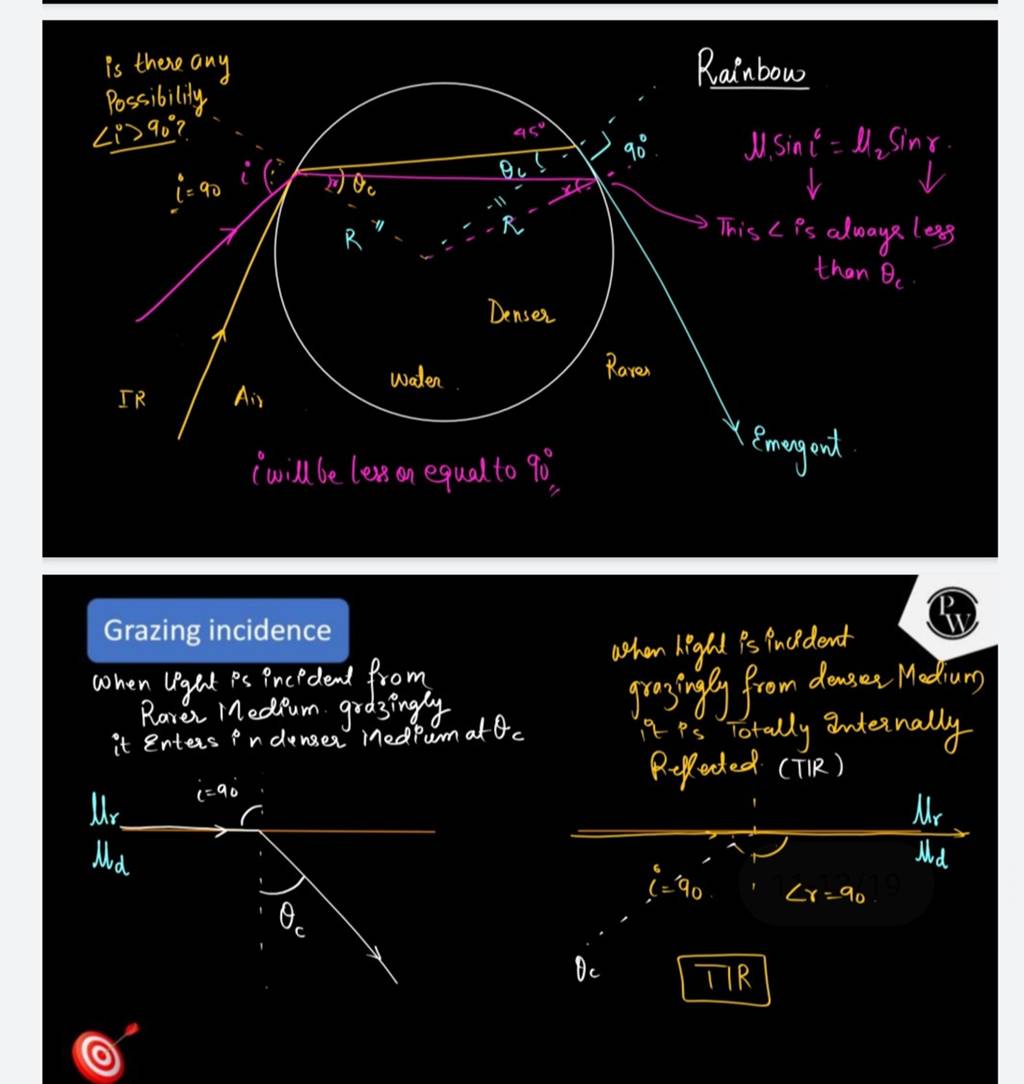 is there any
Possibility
∠i > 90°?
Rainbow
i = 90
i
r
θc
45°
θc
90°
r
μ₁ Sin i = μ₂ Sin r
This ∠ is always less
than θc.
R
R
Denser
Water
Rarer
IR
Air
Emergent
i will be less or equal to 90°
Grazing incidence
PW
When light is incident from
Rarer Medium grazingly
it Enters in denser Medium at θc
When light is incident
grazingly from denser Medium
it is Totally Internally
Reflected (TIR)
i=90
μr
μd
θc
μr
μd
i=90
∠r=90
θc
TIR